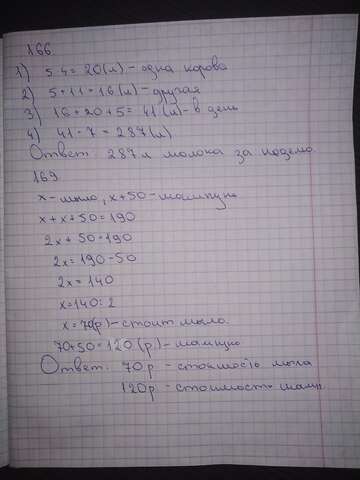 166.
1) 5·4=20(л)-одна корова
2) 5+11=16(л)-другая
3) 16+20+5=41(л)-в день
4) 41·7=287(л)
Ответ: 287л молока за неделю
169.
x-мыло, x+50-шампунь
x+x+50=190
2x+50=190
2x=190-50
2x=140
x=140:2
x=70(р)-стоит мыло.
70+50=120(р)-шампунь
Ответ: 70р - стоимость мыла
120р - стоимость шамп.